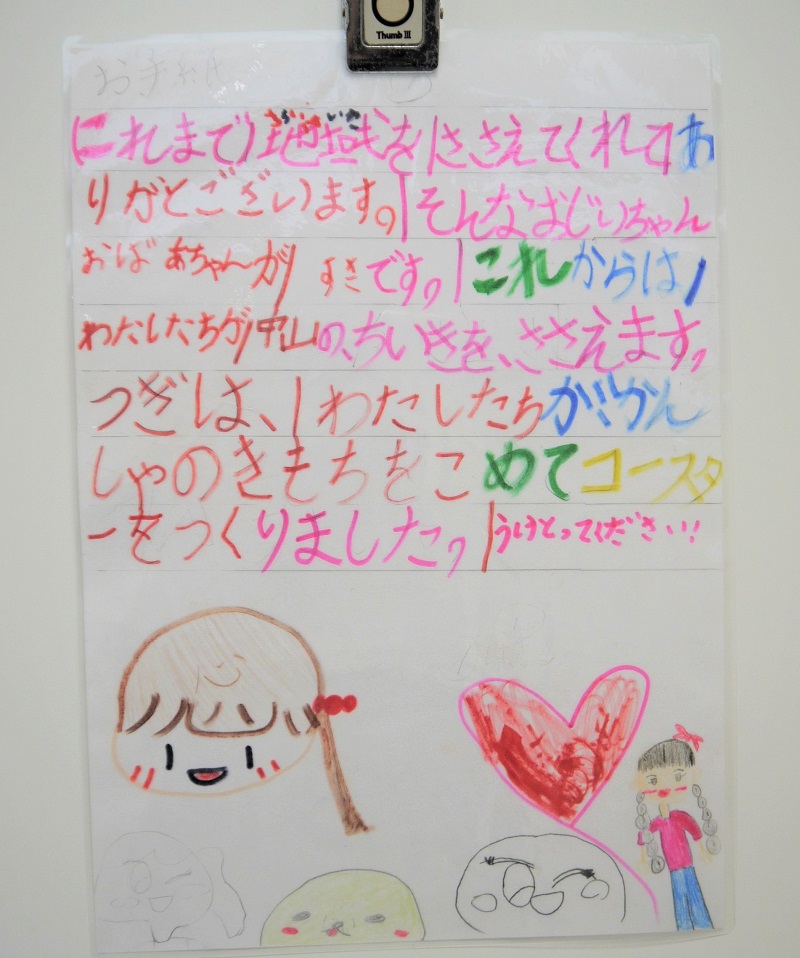 Thumb III
お手紙
これまで地域をささえてくれてあ
りがとございます。そんなおじいちゃん
おばあちゃんがすきです。これからは
わたしたちが中山の、ちいきを、ささえます。
つぎは、わたしたちがかん
しゃのきもちをこめてコースタ
ーをつくりました。うけとってください!!